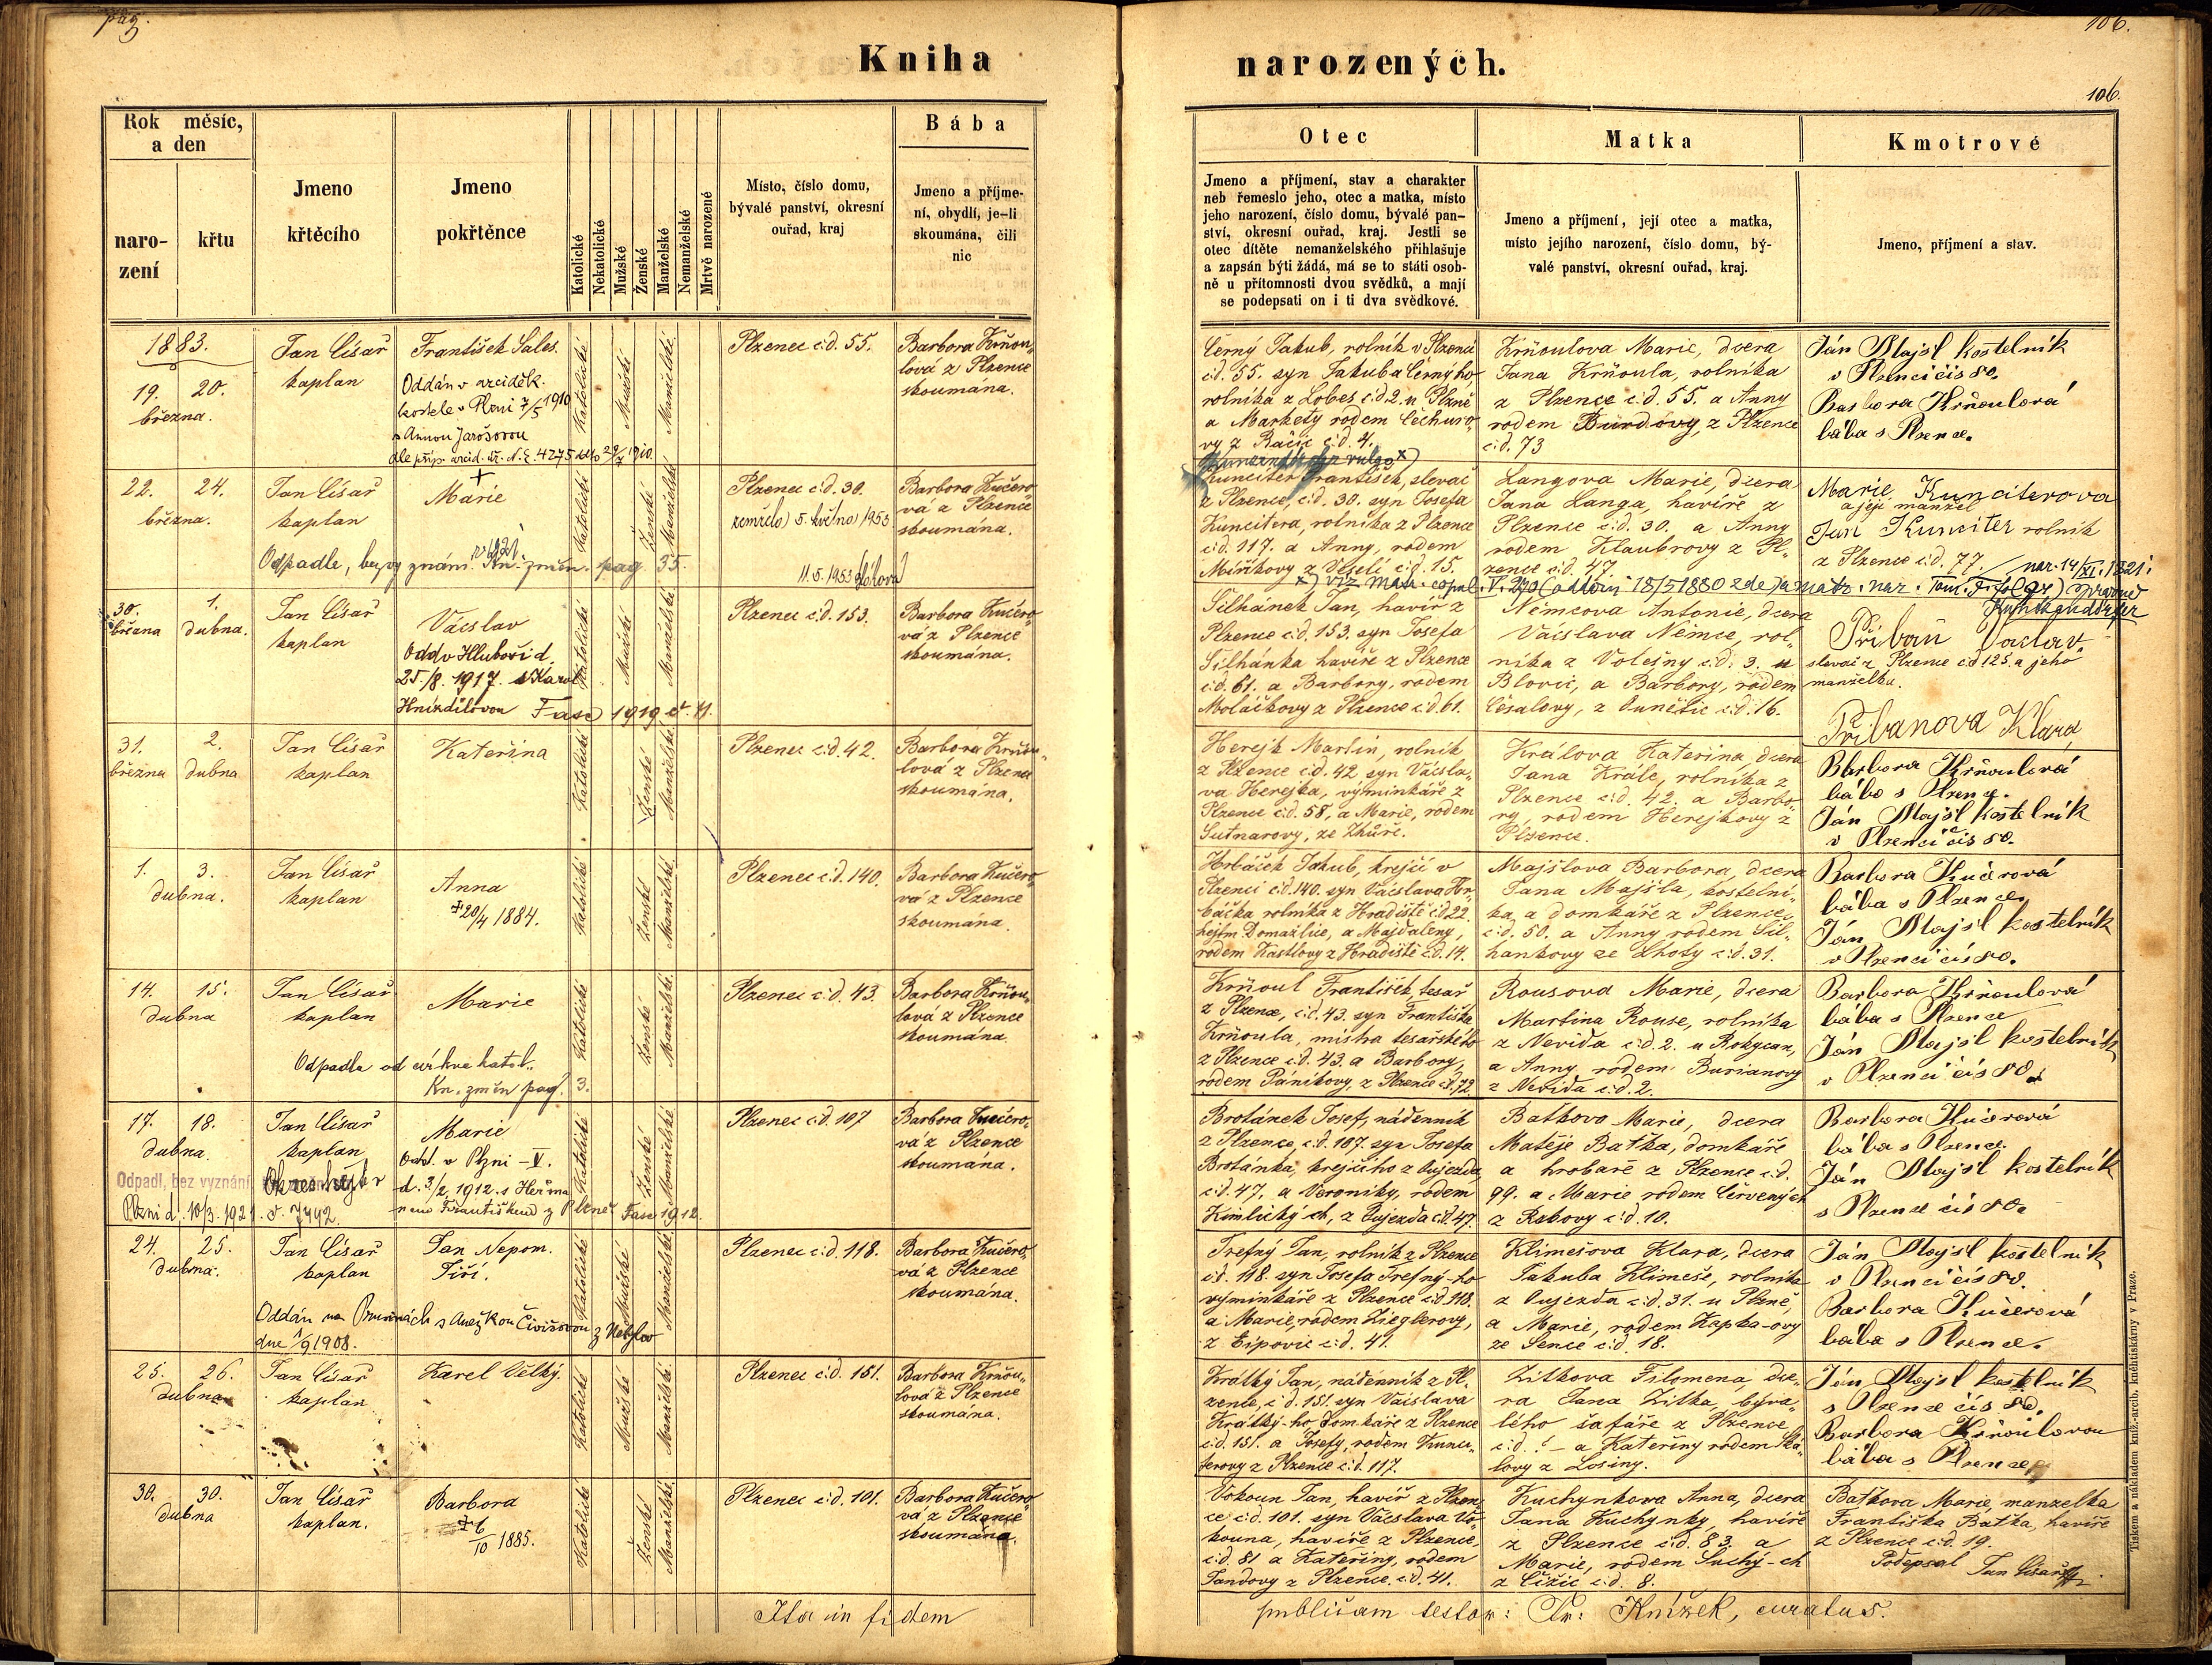 pag.
Kniha
Rok měsíc,
a den
naro-
zení
křtu
Jmeno
křtěcího
Jmeno
pokřtěnce
Katolické
Nekatolické
Mužské
Ženské
Manželské
Nemanželské
Mrtvě narozené
Místo, číslo domu,
bývalé panství, okresní
ouřad, kraj
Bába
Jmeno a příjme-
ní, obydlí, je-li
skoumána, čili
nic
1883.
19. 20.
března.
Jan Císař
kaplan
František Sales.
Oddán v arciděk.
kostele v Plzni 7/5 1910
s Annou Jarošovou
dle příp. arcid. úř. N. E. 4275
Katolické
Mužské
Manželské
Plzenec č.d. 55.
Barbora Krňou„
lová z Plzence
skoumána.
22. 24.
března.
Jan Císař
kaplan
+
Marie
Odpadla, bez vyznání. Kn. změn. pag. 35.
Katolické
Ženské
Manželské
Plzenec č.d. 30.
zemřela 5. května 1953
11.5.1953
Barbora Kučero„
vá z Plzence
skoumána.
30. 1.
března dubna.
Jan Císař
kaplan
Václav
Odd v Hluboši d.
25./8. 1917. s Karol.
Hnízdilovou Fasc 1919 č. 11.
Katolické
Mužské
Manželské
Plzenec č.d. 153.
Barbora Kučero„
vá z Plzence
skoumána.
31. 2.
března dubna
Jan Císař
kaplan
Kateřina
Katolické
Ženské
Manželské
Plzenec č.d. 42.
Barbora Krňou„
lová z Plzence
skoumána.
1. 3.
dubna.
Jan Císař
kaplan
Anna
+ 20/4 1884.
Katolické
Ženské
Manželské
Plzenec č.d. 140.
Barbora Kučero„
vá z Plzence
skoumána.
14. 15.
dubna
Jan Císař
kaplan
Marie
Odpadla od církve katol.
Kn. změn pag. 3.
Katolické
Ženské
Manželské
Plzenec č.d. 43.
Barbora Krňou„
lová z Plzence
skoumána.
17. 18.
dubna.
Jan Císař
kaplan
Marie
Odd. v Plzni – V.
d. 3/2 1912. s Heřma
nem Františkem z Plzně Fasc 1912.
Odpadl, bez vyznání
Okres. hejt. v
Plzni d. 10/3. 1921. č. 7492.
Katolické
Ženské
Manželské
Plzenec č.d. 107
Barbora Kučero„
vá z Plzence
skoumána.
24. 25.
dubna.
Jan Císař
kaplan
Jan Nepom.
Jiří.
Oddán na s Anežkou Čivišovou z
dne 1/9 1908.
Katolické
Mužské
Manželské
Plzenec č.d. 118.
Barbora Kučero„
vá z Plzence
skoumána.
25. 26.
dubna
Jan Císař
kaplan
Karel Velký.
Katolické
Mužské
Manželské
Plzenec č.d. 151.
Barbora Krňou„
lová z Plzence
skoumána.
30. 30.
dubna
Jan Císař
kaplan.
Barbora
+ 6/10 1885.
Katolické
Ženské
Manželské
Plzenec č.d. 101.
Barbora Kučero„
vá z Plzence
skoumána.
Ita in fidem
106.
narozených.
106.
Otec
Jmeno a příjmení, stav a charakter
neb řemeslo jeho, otec a matka, místo
jeho narození, číslo domu, bývalé pan-
ství, okresní ouřad, kraj. Jestli se
otec dítěte nemanželského přihlašuje
a zapsán býti žádá, má se to státi osob-
ně u přítomnosti dvou svědků, a mají
se podepsati on i ti dva svědkové.
Matka
Jmeno a příjmení, její otec a matka,
místo jejího narození, číslo domu, bý-
valé panství, okresní ouřad, kraj.
Kmotrové
Jmeno, příjmení a stav.
Černý Jakub, rolník v Plzenci
č.d. 55. syn Jakuba Černýho,
rolníka z Lobes č.d. 2. u Plzně
a Markety rodem Čechuro„
vy z Račic č.d. 4.
Krňoulova Marie, dcera
Jana Krňoula, rolníka
z Plzence č.d. 55. a Anny
rodem Burdovy, z Plzence
č.d. 73
Ján Majsl kostelník
v Plzenci čis 80.
Barbora Krňoulová
bába s Plzence.
Kunciter František, slevač
z Plzence, č.d. 30. syn Josefa
Kuncitera, rolníka z Plzence
č.d. 117. a Anny, rodem
Miříkovy z Veselí č.d. 15.
Langova Marie, dcera
Jana Langa, havíře z
Plzence č.d. 30. a Anny
rodem Klaubrovy z Pl-
zence č.d. 47
Marie Kunciterova
a její manžel
Jan Kunciter rolník
z Plzence č.d. 77.
x) viz matr. copul. V. 270 (oddáni 18/5 1880 zde) a matr. nar. Tom. F. fol
nar. 14/XI. 1821.
Šilhánek Jan, havíř z
Plzence č.d. 153. syn Josefa
Šilhánka havíře z Plzence
č.d. 61. a Barbory, rodem
Moláčkovy z Plzence č.d. 61.
Němcova Antonie, dcera
Václava Němce, rol„
níka z Volešny č.d. 3. u
Blovic, a Barbory, rodem
Česalovy, z Žunčic č.d. 16.
Přibáň Vaclav.
slevač z Plzence č.d 125. a jeho
manželka.
Přibanova Klara
Herejk Martin, rolník
z Plzence č.d. 42 syn Václa„
va Herejka, výminkáře z
Plzence č.d. 58, a Marie, rodem
Sutnarovy, ze Lhůře.
Králova Kateřina, dcera
Jana Krále, rolníka z
Plzence č.d. 42. a Barbo„
ry, rodem Herejkovy z
Plzence.
Barbora Krňoulová
bába s Plzence.
Ján Majsl kostelník
v Plzenci čis 80.
Hrbáček Jakub, krejčí v
Plzenci č.d. 140. syn Václava Hr„
báčka rolníka z Hradiště č.d 22.
hejtm Domažlice, a Majdaleny,
rodem Kastlovy z Hradiště č.d. 14.
Majslova Barbora, dcera
Jana Majsla, kostelní„
ka, a domkáře z Plzence
č.d. 50. a Anny rodem Šil„
hankovy ze Lhoty č.d. 31.
Barbora Kučrová
bába s Plzence.
Ján Majsl kostelník
v Plzenci čis 80.
Krňoul František, tesař
z Plzence, č.d. 43. syn Františka
Krňoula, mistra tesařského
z Plzence č.d. 43. a Barbory,
rodem Pánikovy, z Plzence č.d. 72
Rousova Marie, dcera
Martina Rouse, rolníka
z Nevida č.d. 2. u Rokycan,
a Anny rodem Burianovy
z Nevida č.d. 2.
Barbora Krňoulová
bába s Plzence
Ján Majsl kostelník
v Plzenci čis 80.
Brotánek Josef, nádenník
z Plzence, č.d. 107. syn Josefa
Brotánka, krejčího z Oujezda,
č.d. 47, a Veroniky, rodem
Kimlických, z Oujezda č.d. 47.
Batkova Marie, dcera
Matěje Baťka, domkáře
a hrobaře z Plzence č.d.
99. a Marie rodem Červených
z Robovy č.d. 10.
Barbora Kučrová
bába s Plzence.
Ján Majsl kostelník
s Plzence čis 80.
Trefný Jan, rolník z Plzence
č.d. 118. syn Josefa Trefný-ho
výminkáře z Plzence č.d. 118.
a Marie, rodem Zieglerovy,
z Ejpovic č.d. 41.
Klimešova Klara, dcera
Jakuba Klimeše, rolníka
z Oujezda č.d. 31. u Plzně,
a Marie, rodem Kapka-ovy
ze Sence č.d. 18.
Ján Majsl kostelník
v Plzenci čis 80.
Barbora Kučerová
bába s Plzence.
Krátký Jan, nádenník z Pl.
zence, č.d. 151. syn Václava
Krátký-ho, domkáře z Plzence
č.d. 151. a Josefy, rodem Kunci„
terovy z Plzence č.d. 117.
Zítkova Filomena, dce„
ra Jana Zítka, býva„
lého šafáře z Plzence
č.d. ? – a Kateřiny rodem Ská„
lovy z Losiny.
Ján Majsl kostelník
s Plzence čis 80.
Barbora Krňoulovou
bába s Plzence
Vokoun Jan, havíř z Plzen
ce č.d. 101. syn Václava Vo„
kouna, havíře z Plzence,
č.d. 81 a Kateřiny, rodem
Jandovy z Plzence. č.d. 41.
Kuchynkova Anna, dcera
Jana Kuchynky, havíře
z Plzence č.d. 83. a
Marie, rodem Suchý-ch
z Čižic č.d. 8.
Baťkova Marie, manzelka
Františka Baťka, havíře
z Plzence č.d. 19.
Podepsal Jan Císař
publicam testor: Fr: Knížek, curatus.
Tiskem a nákladem kníž.-arcib. knihtiskárny v Praze.